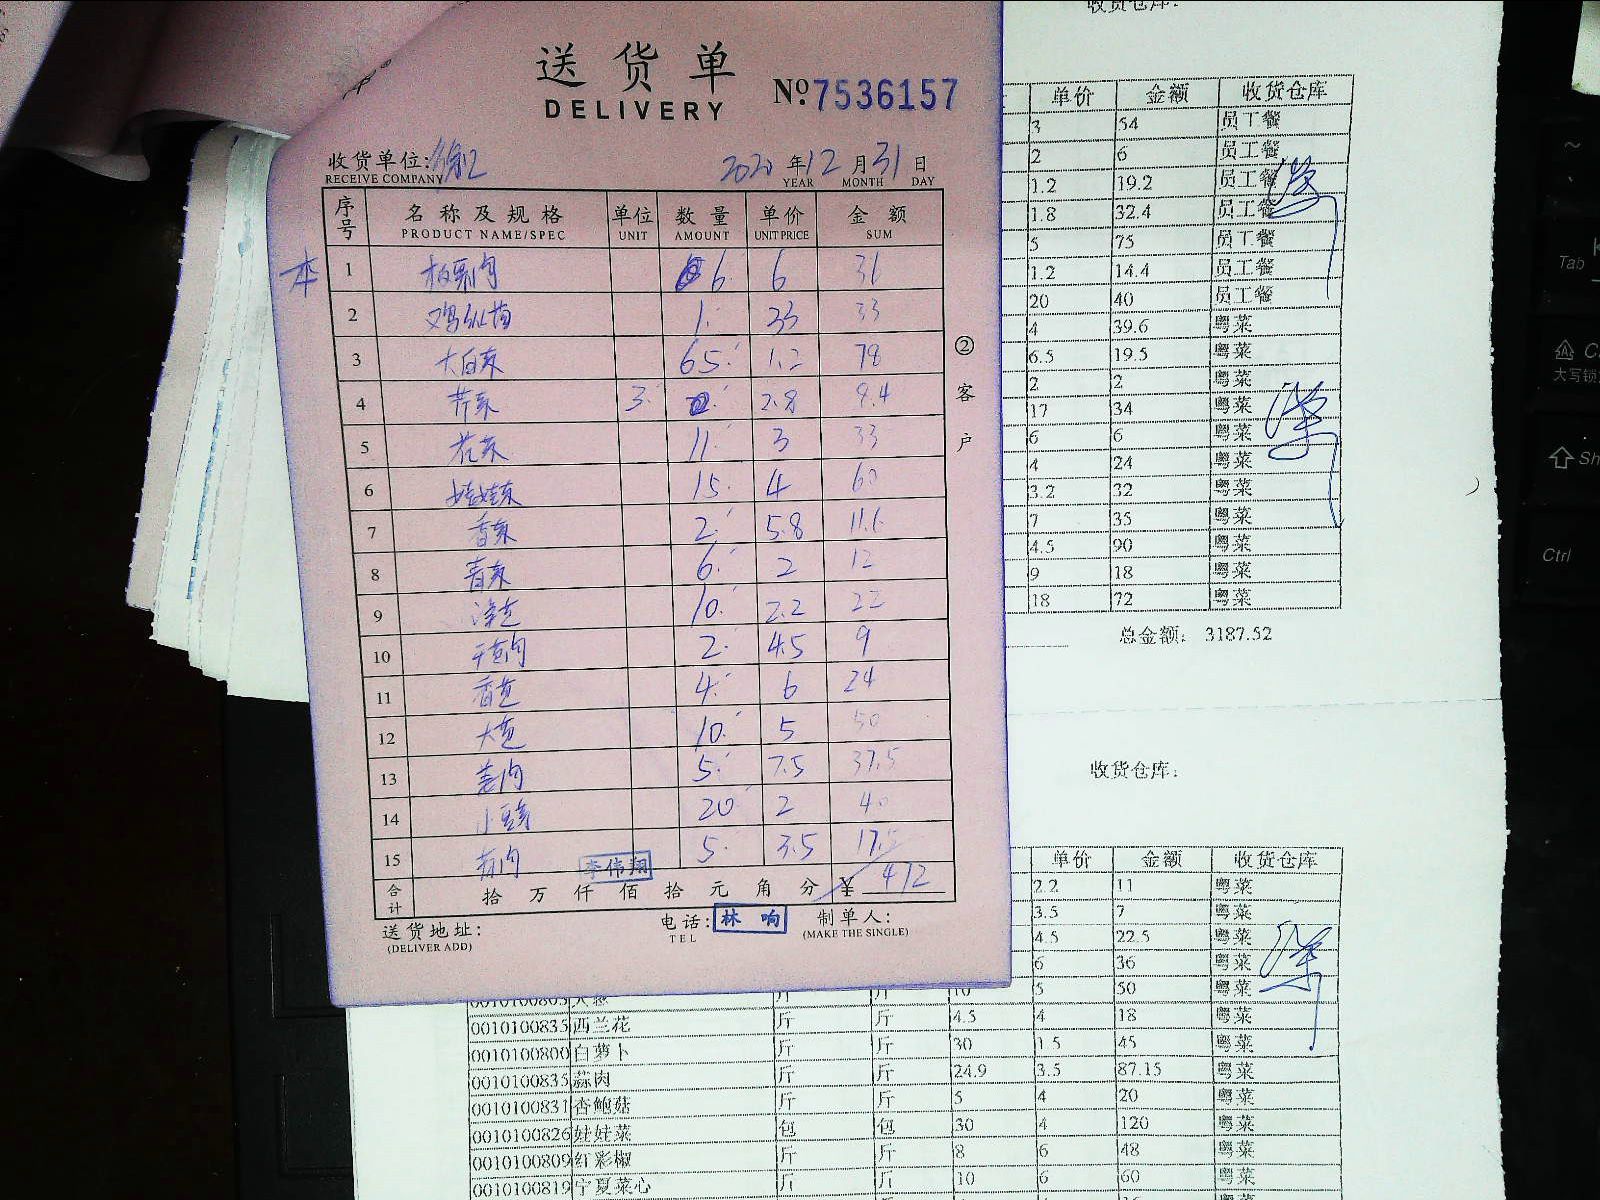 送货单
DELIVERY
№ 7536157
收货单位:
RECEIVE COMPANY
2020 年 12 月 31 日
YEAR MONTH DAY
序号 名称及规格 单位 数量 单价 金额
PRODUCT NAME/SPEC UNIT AMOUNT UNIT PRICE SUM
1 板栗肉 6 6 31
2 鸡纵菌 1 33 33
3 大白菜 65 1.2 78
4 芹菜 3 2.8 8.4
5 花菜 11 3 33
6 娃娃菜 15 4 60
7 香菜 2 5.8 11.6
8 青菜 6 2 12
9 10 2.2 22
10 干葱肉 2 4.5 9
11 香葱 4 6 24
12 大葱 10 5 50
13 姜肉 5 7.5 37.5
14 小豆芽 20 2 40
15 蒜肉 5 3.5 17.5
合计 拾 万 仟 佰 拾 元 角 分 ¥ 472
李伟翔
送货地址:
(DELIVER ADD)
电话:
TEL
林响
制单人:
(MAKE THE SINGLE)
②客户
收货仓库:
单价 金额 收货仓库
3 54 员工餐
2 6 员工餐
1.2 19.2 员工餐
1.8 32.4 员工餐
5 75 员工餐
1.2 14.4 员工餐
20 40 员工餐
4 39.6 粤菜
6.5 19.5 粤菜
2 2 粤菜
17 34 粤菜
6 6 粤菜
4 24 粤菜
3.2 32 粤菜
7 35 粤菜
4.5 90 粤菜
9 18 粤菜
18 72 粤菜
总金额: 3187.52
收货仓库:
单价 金额 收货仓库
2.2 11 粤菜
3.5 7 粤菜
4.5 22.5 粤菜
6 36 粤菜
0010100805 大葱 斤 斤 10 5 50 粤菜
0010100835 西兰花 斤 斤 4.5 4 18 粤菜
0010100800 白萝卜 斤 斤 30 1.5 45 粤菜
0010100835 蒜肉 斤 斤 24.9 3.5 87.15 粤菜
0010100831 杏鲍菇 斤 斤 5 4 20 粤菜
0010100826 娃娃菜 包 包 30 4 120 粤菜
0010100809 红彩椒 斤 斤 8 6 48 粤菜
0010100819 宁夏菜心 斤 斤 10 6 60 粤菜
Tab
Ctrl